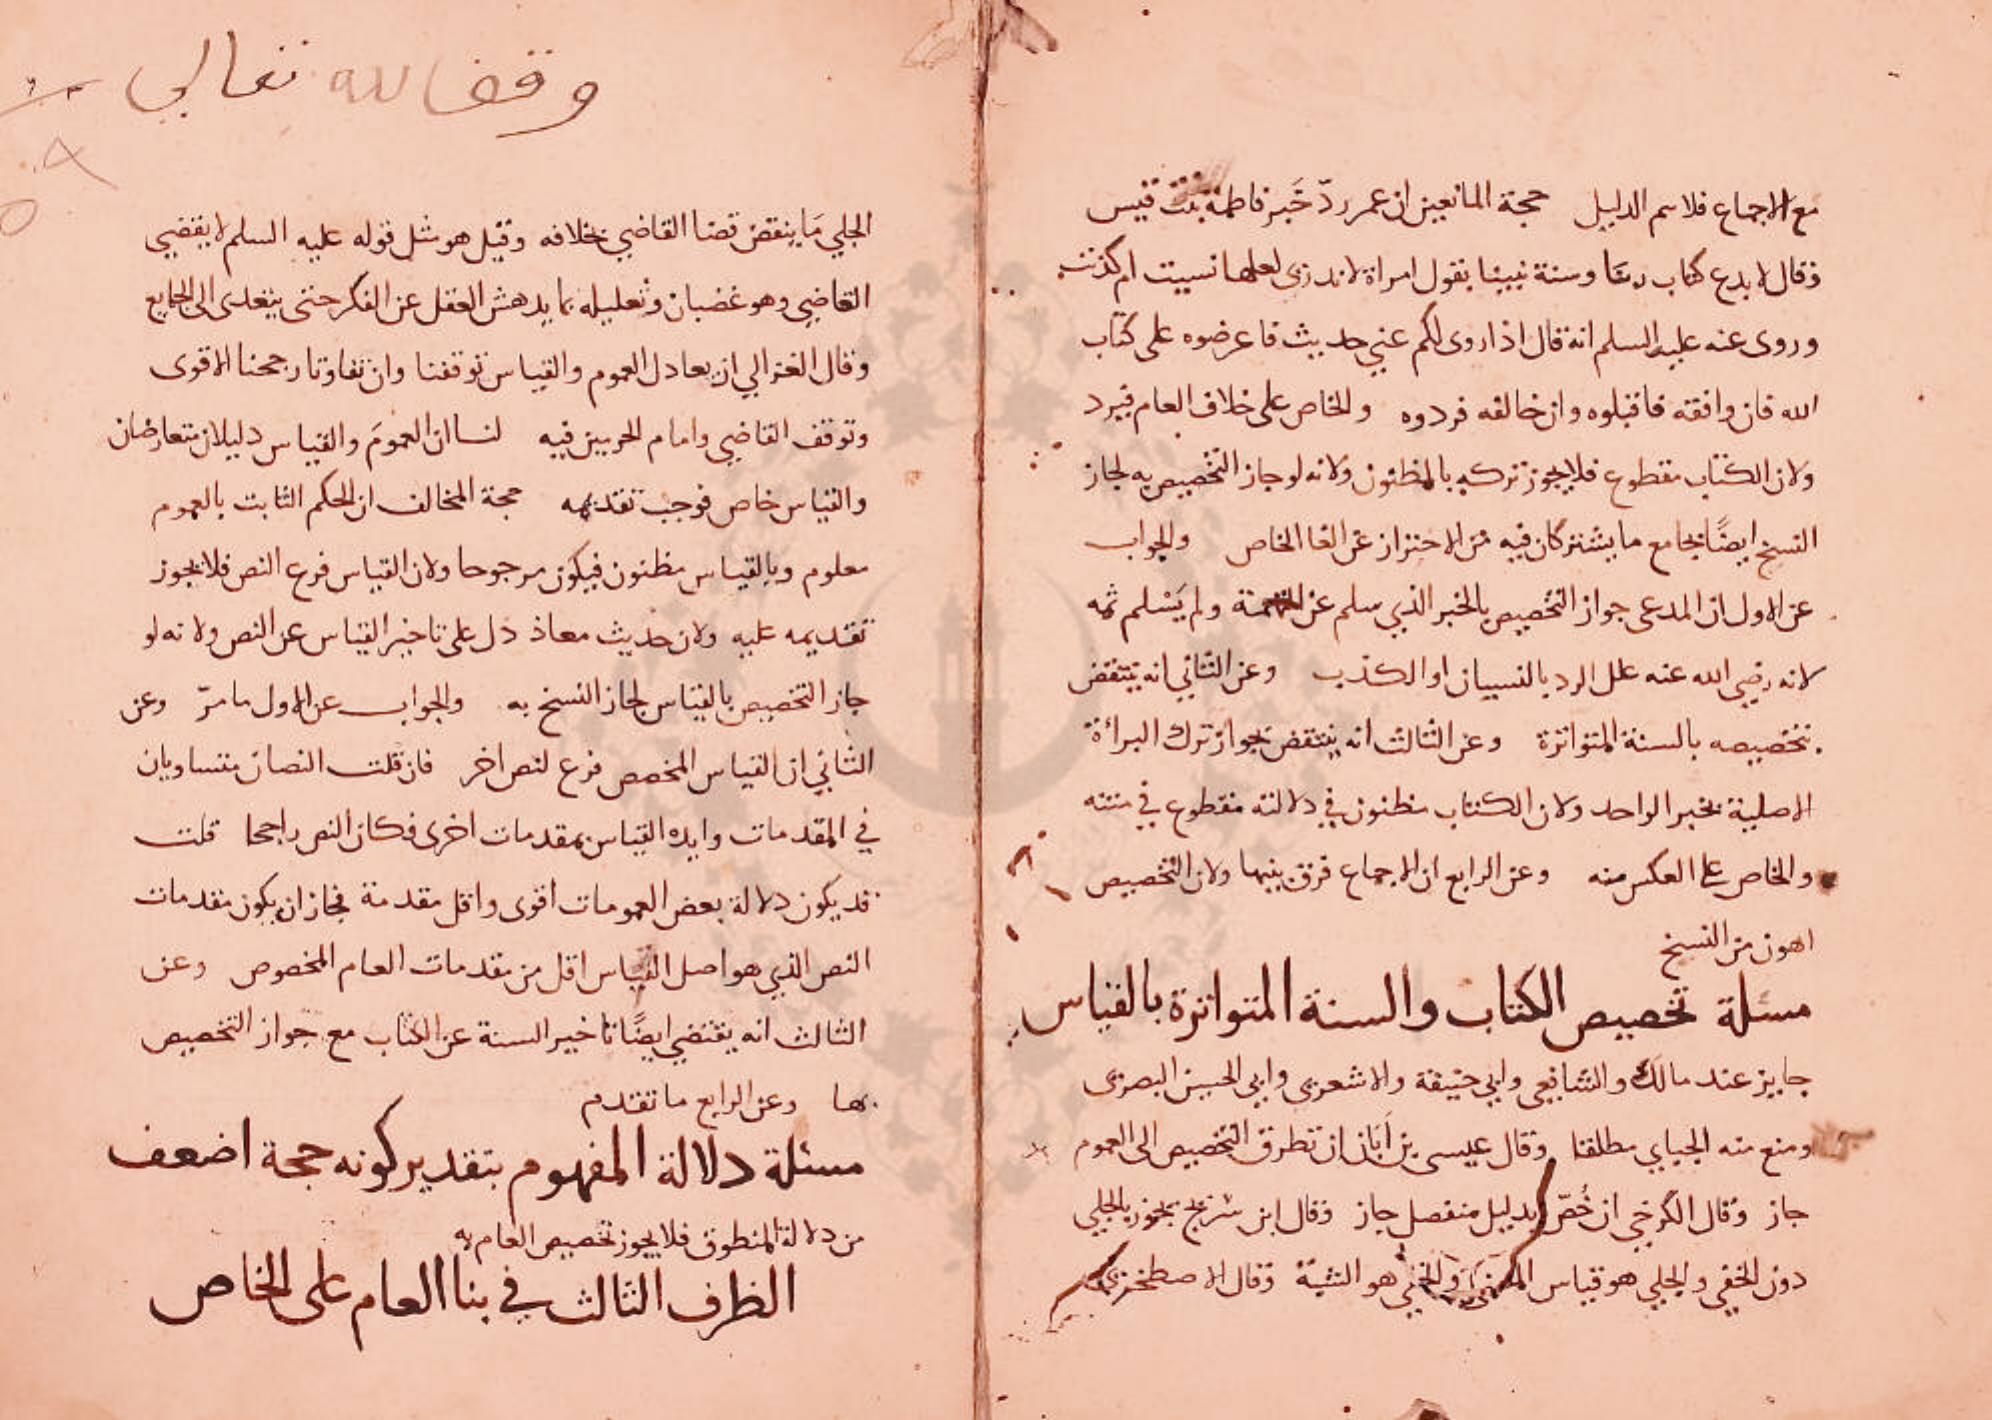 مع الاجماع فلا سم الدليل حجة المانعين ان عمر ردّ خَبر فاطمة بنت قيس
فقال لا يدع كتاب ربنا وسنة نبينا بقول امراة لا ندرى لعلها نسيت ام كذبت
وروى عنه عليه السلم انه قال اذا روى لكم عني حديث فاعرضوه على كتاب
الله فان وافقه فاقبلوه وان خالفه فردوه والخاص على خلاف العام فيرد
ولان الكتاب مقطوع فلا يجوز تركه بالمظنون ولانه لو جاز التخصيص به لجاز
النسخ ايضًا بجامع ما يشتركان فيه من الاحتراز عن الغا الخاص والجواب
عن الاول ان المدعى جواز التخصيص بالخبر الذي سلم عن التهمة ولم يَسْلم ثمه
لانه رضي الله عنه علل الرد بالنسيان او الكذب وعن الثاني انه ينتقض
بتخصيصه بالسنة المتواترة وعن الثالث انه ينتقض بجواز ترك البراءة
الاصلية بخبر الواحد ولان الكتاب مظنون في دلالته مقطوع في متنه
والخاص على العكس منه وعن الرابع ان الاجماع فرق بينها ولان التخصيص
اهون من النسخ
مسئلة تخصيص الكتاب والسنة المتواترة بالقياس
جايز عند مالك والشافعي وابي حنيفة والاشعرى وابي الحسين البصرى
ومنع منه الجبايي مطلقا وقال عيسى بن اَبَان ان تطرق التخصيص الى العموم
جاز وقال الكرخي ان خُصّ بدليل منفصل جاز وقال ابن سريج يجوز بالجلي
دون الخفي والجلي هو قياس المعنى والخفي هو الشبه وقال الاصطخرى
وقف لله تعالى
الجلي مَا ينقض قضا القاضي بخلافه وقيل هو مثل قوله عليه السلم لا يقضي
القاضي وهو غضبان وتعليله بما يدهش العقل عن الفكر حتى يتعدى الى الجايع
وقال الغزالي ان تعادل العموم والقياس توقفنا وان تفاوتا رجحنا الاقوى
وتوقف القاضي وامام الحرمين فيه لنا ان العمومَ والقياس دليلان متعارضان
والقياس خاص فوجب تقديمه حجة المخالف ان الحكم الثابت بالعموم
معلوم وبالقياس مظنون فيكون مرجوحا ولان القياس فرع النص فلا يجوز
تقديمه عليه ولان حديث معاذ دل على تاخير القياس عن النص ولانه لو
جاز التخصيص بالقياس لجاز النسخ به والجواب عن الاول ما مرّ وعن
الثاني ان القياس المخصص فرع لنص اخر فان قلت النصان متساويان
في المقدمات وايده القياس بمقدمات اخرى فكان النص راجحا قلت
قد يكون دلالة بعض العمومات اقوى واقل مقدمة فجاز ان يكون مقدمات
النص الذي هو اصل القياس اقل من مقدمات العام المخصوص وعن
الثالث انه يقتضي ايضًا تاخير السنة عن الكتاب مع جواز التخصيص
بها وعن الرابع ما تقدم
مسئلة دلالة المفهوم بتقدير كونه حجة اضعف
من دلالة المنطوق فلا يجوز تخصيص العام به
الظرف الثالث في بنا العام على الخاص